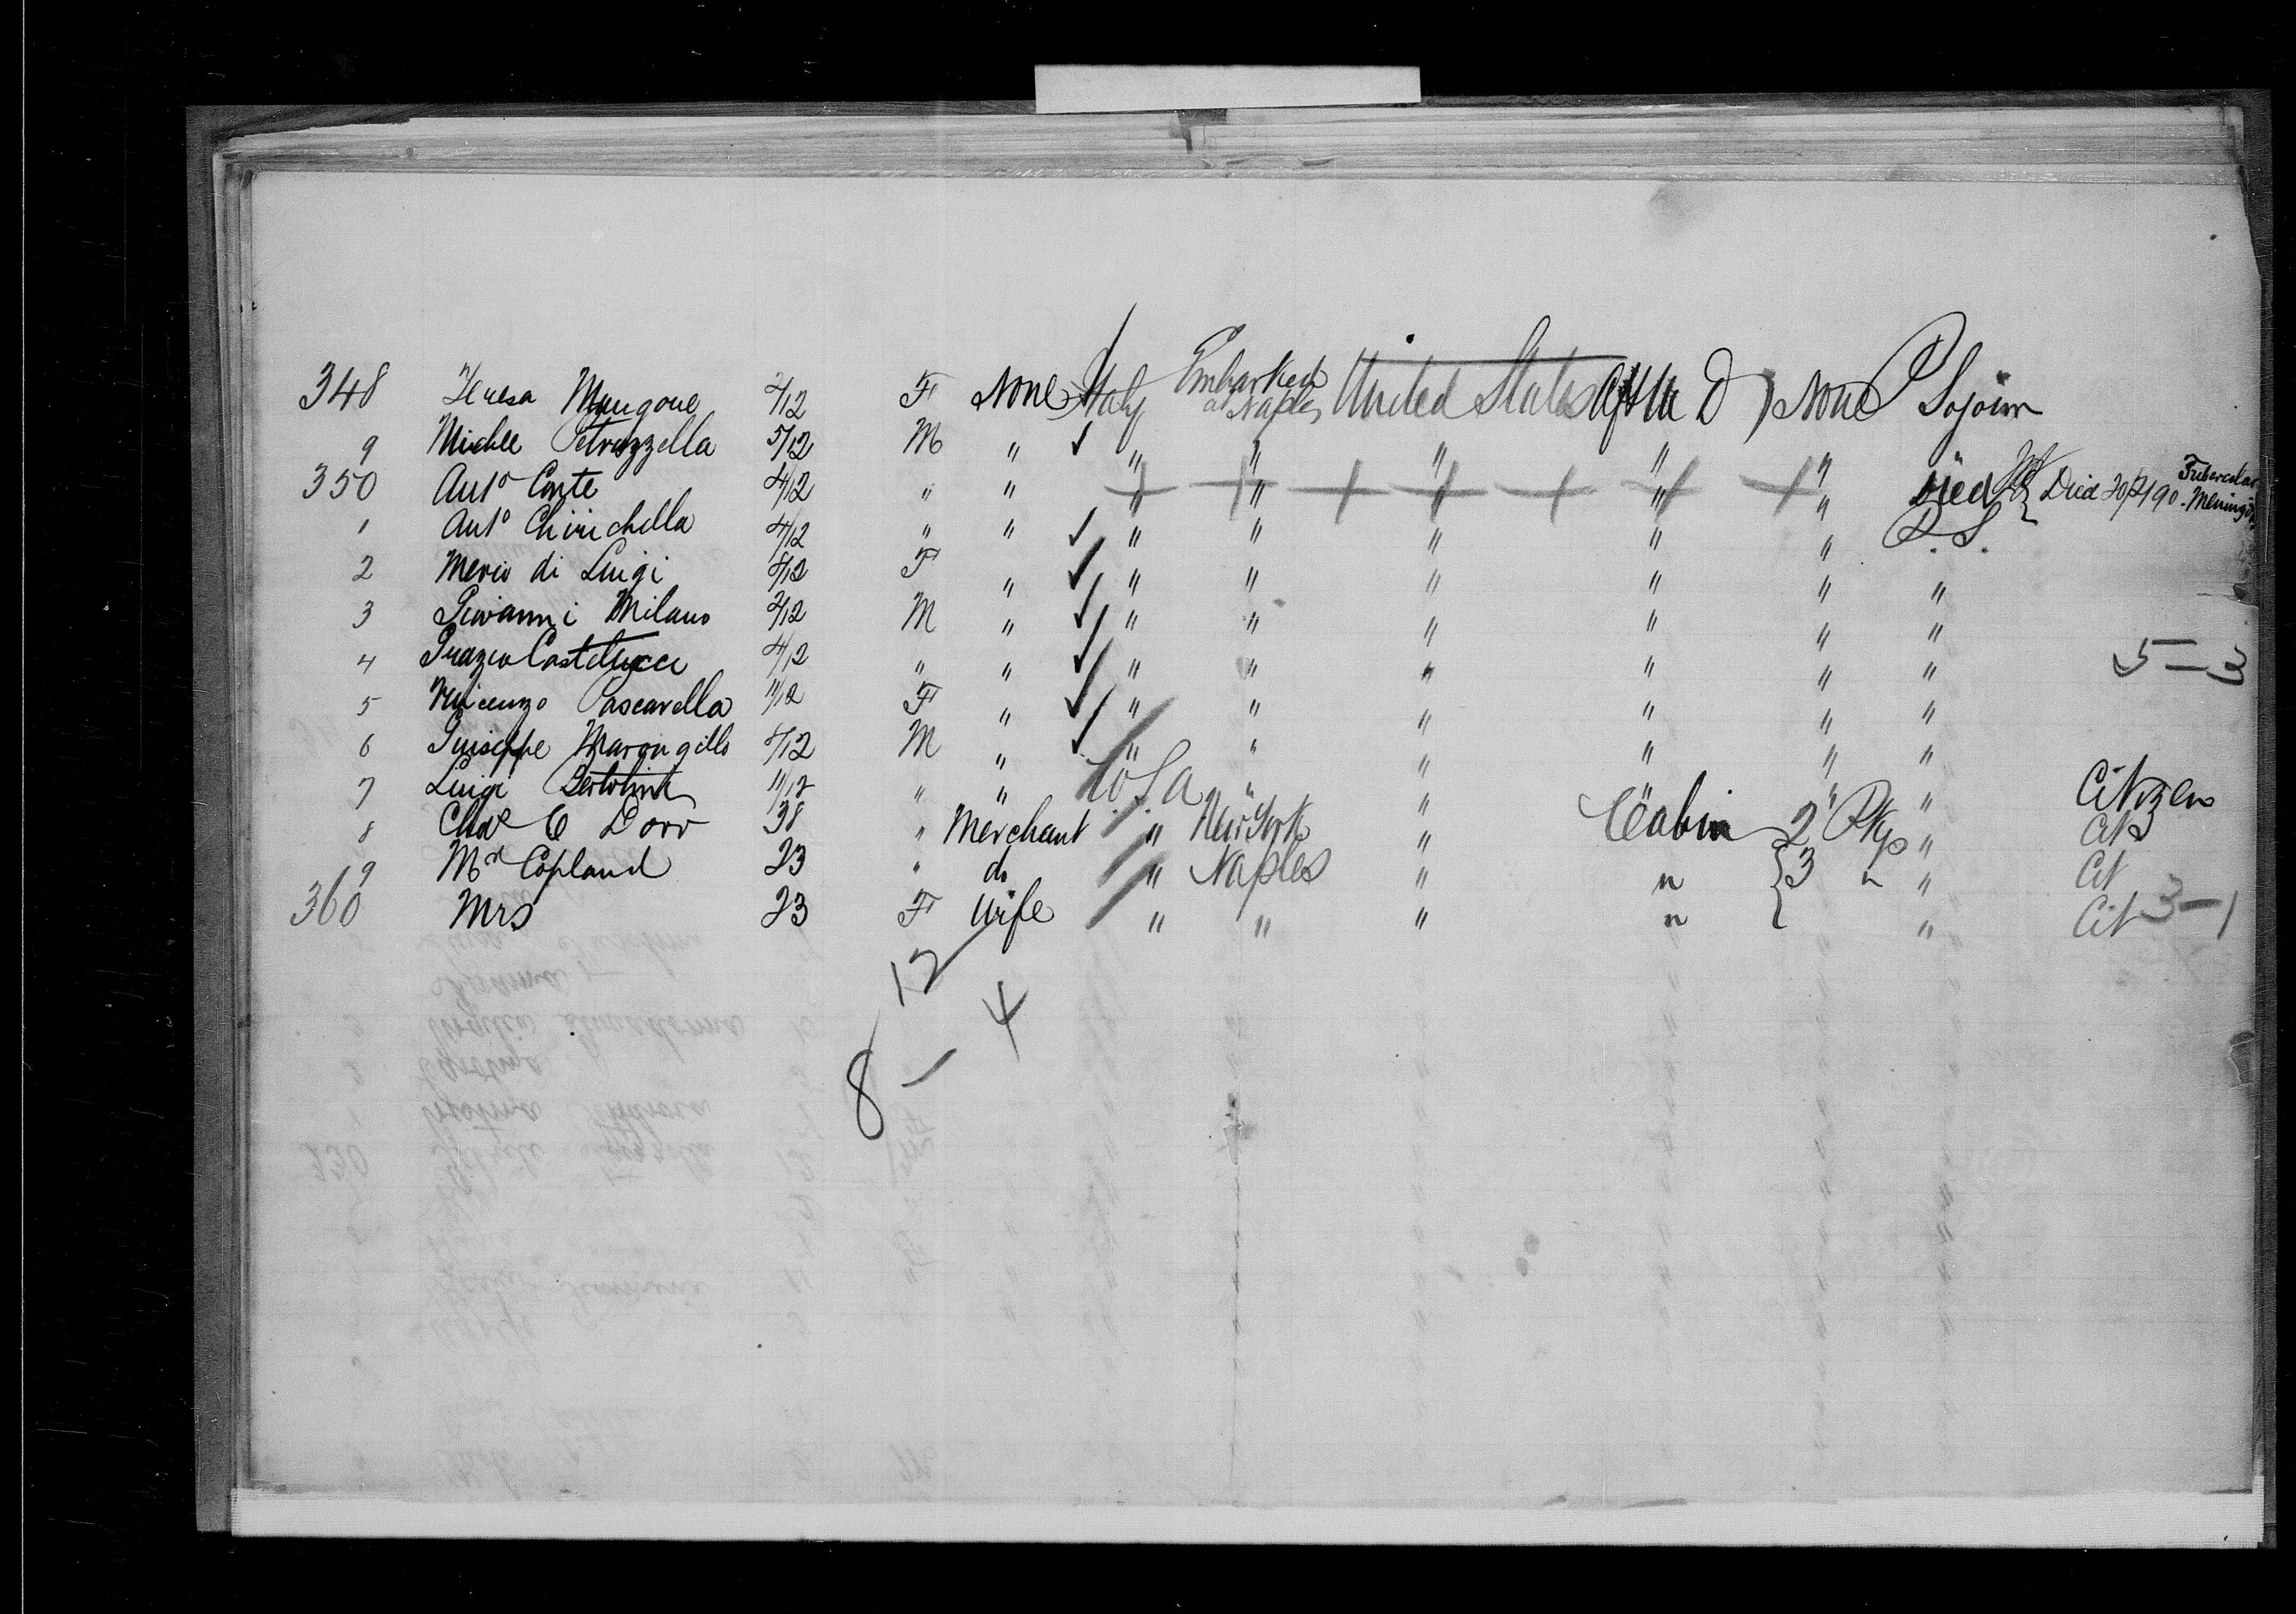 348 Teresa Mangone 7/12 F None Italy Embarked at Naples United States Aft M D None P Sojourn
9 Michele Petruzzella 5/12 M " " " " " "
350 Anto Conte 4/12 " " " " " " " Died Died 20/3/90 Tubercular Meningitis
1 Anto Chirichella 4/12 " " " " " " " P.S.
2 Maria di Luigi 8/12 F " " " " " " "
3 Giovanni Milano 2/12 M " " " " " " "
4 Grazio Castellucci 4/12 " " " " " " " " 5-3
5 Vincenzo Pascarella 11/12 F " " " " " " "
6 Guiseppe Marongello 5/12 M " " " " " " "
7 Luigi Bertolini 11/12 " " U.S.A " " " " " Citizen
8 Chas E Dorr 38 " Merchant " New York " Cabin 2 Pkgs " Cit
9 Mr Copland 23 " do " Naples " " 3 " " Cit
360 Mrs 23 F Wife " " " " " Cit 3-1
12
8 - 4